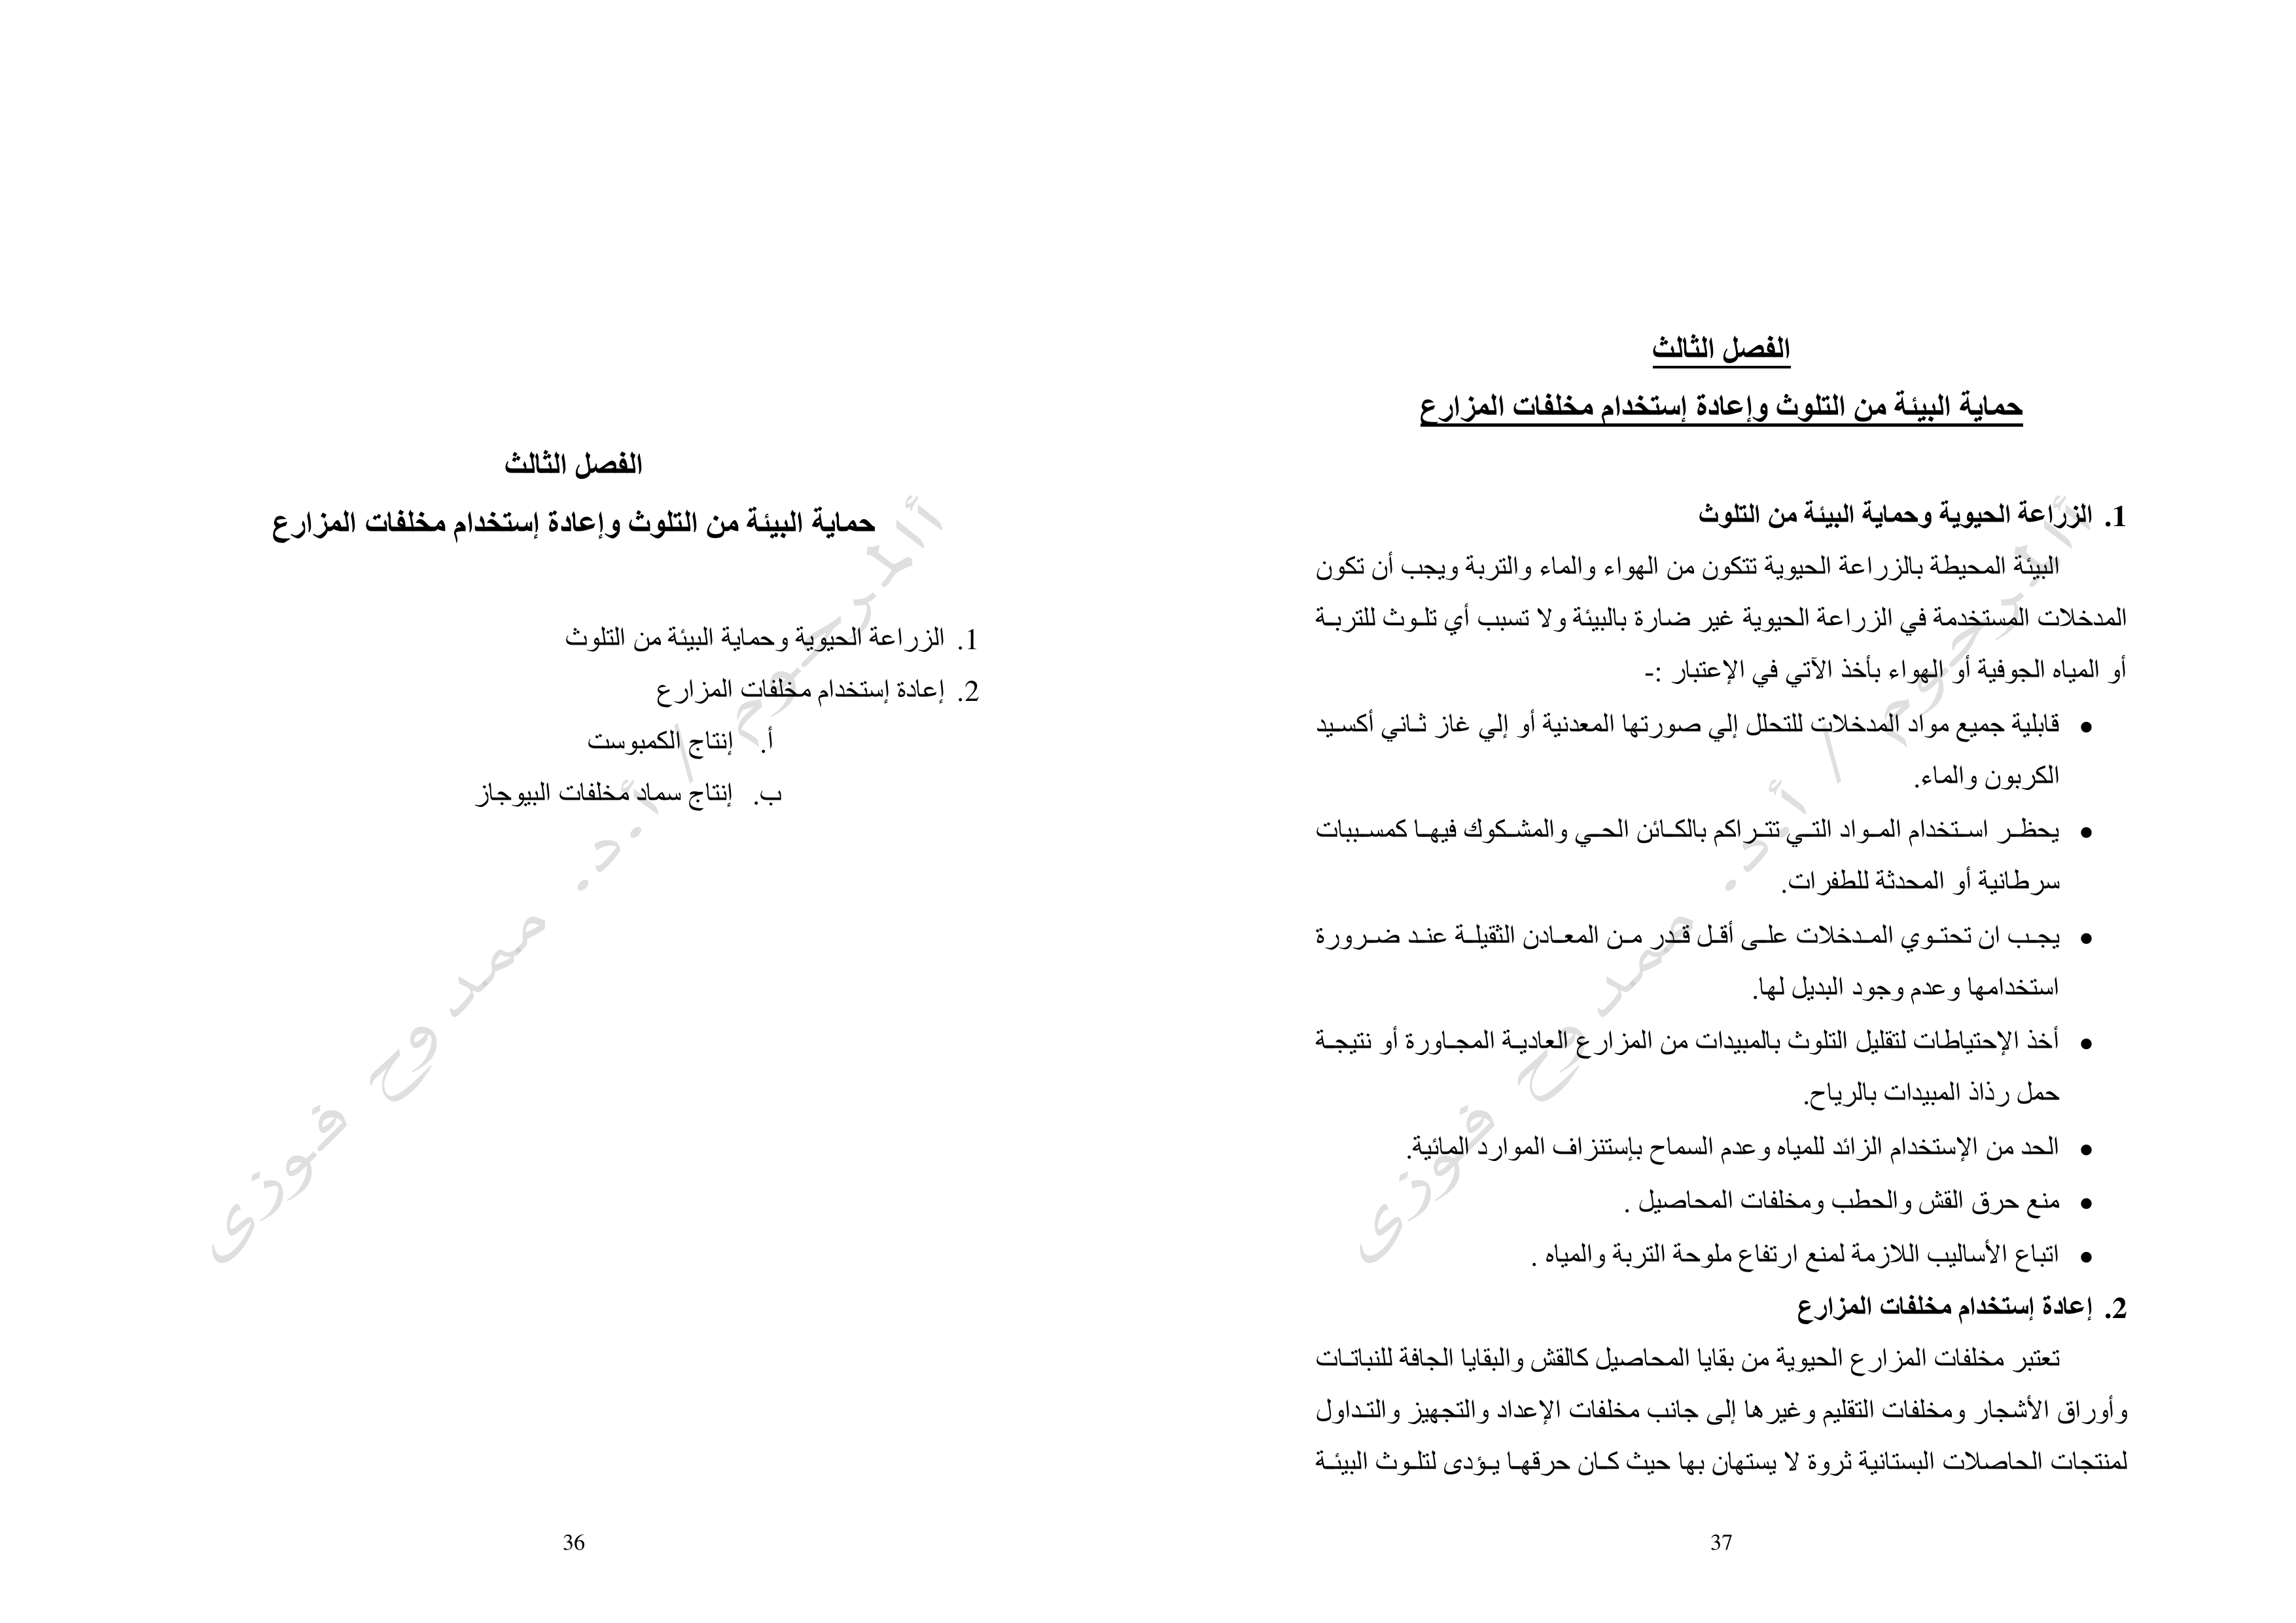 الفصل الثالث
حماية البيئة من التلوث وإعادة إستخدام مخلفات المزارع
1. الزراعة الحيوية وحماية البيئة من التلوث
2. إعادة إستخدام مخلفات المزارع
أ. إنتاج الكمبوست
ب. إنتاج سماد مخلفات البيوجاز
ألمرحوم / أ.د. ممدوح فوزى
36
الفصل الثالث
حماية البيئة من التلوث وإعادة إستخدام مخلفات المزارع
1. الزراعة الحيوية وحماية البيئة من التلوث
البيئة المحيطة بالزراعة الحيوية تتكون من الهواء والماء والتربة ويجب أن تكون
المدخلات المستخدمة في الزراعة الحيوية غير ضارة بالبيئة ولا تسبب أي تلوث للتربة
أو المياه الجوفية أو الهواء بأخذ الآتي في الإعتبار :-
• قابلية جميع مواد المدخلات للتحلل إلي صورتها المعدنية أو إلي غاز ثاني أكسيد
الكربون والماء.
• يحظر استخدام المواد التي تتراكم بالكائن الحي والمشكوك فيها كمسببات
سرطانية أو المحدثة للطفرات.
• يجب ان تحتوي المدخلات على أقل قدر من المعادن الثقيلة عند ضرورة
استخدامها وعدم وجود البديل لها.
• أخذ الإحتياطات لتقليل التلوث بالمبيدات من المزارع العادية المجاورة أو نتيجة
حمل رذاذ المبيدات بالرياح.
• الحد من الإستخدام الزائد للمياه وعدم السماح بإستنزاف الموارد المائية.
• منع حرق القش والحطب ومخلفات المحاصيل .
• اتباع الأساليب اللازمة لمنع ارتفاع ملوحة التربة والمياه .
2. إعادة إستخدام مخلفات المزارع
تعتبر مخلفات المزارع الحيوية من بقايا المحاصيل كالقش والبقايا الجافة للنباتات
وأوراق الأشجار ومخلفات التقليم وغيرها إلى جانب مخلفات الإعداد والتجهيز والتداول
لمنتجات الحاصلات البستانية ثروة لا يستهان بها حيث كان حرقها يؤدى لتلوث البيئة
ألمرحوم / أ.د. ممدوح فوزى
37